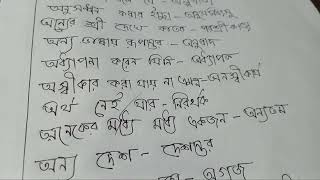 অনুসন্ধান করার ইচ্ছা - অনুসন্ধিৎসা
অন্যের শ্রী দেখে কাতর - পরশ্রীকাতর
অন্য ভাষায় রূপান্তর - অনুবাদ
অধ্যাপনা করেন যিনি - অধ্যাপক
অস্বীকার করা যায় না এমন - অনস্বীকার্য
অর্থ নেই যার - নিরর্থক
অনেকের মধ্যে একজন - অন্যতম
অন্য দেশ - দেশান্তর
- অগ্রজ